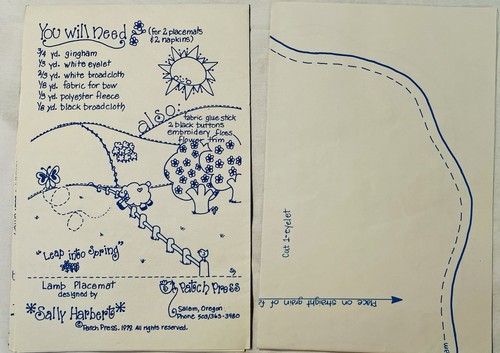 You will need (for 2 placemats
& 2 napkins)
3/4 yd. gingham
1/3 yd. white eyelet
2/3 yd. white broadcloth
1/8 yd. fabric for bow
yd. polyester fleece
1/8 yd. black broadcloth
also:
fabric glue stick
2 black buttons
embroidery floss
flower trim
"Leap into Spring"
Lamb Placemat
designed by
*Sally Harberts*
Patch Press
Salem, Oregon
© Patch Press. 1979. All rights reserved.
Cut 1-eyelet
Place on straight grain of